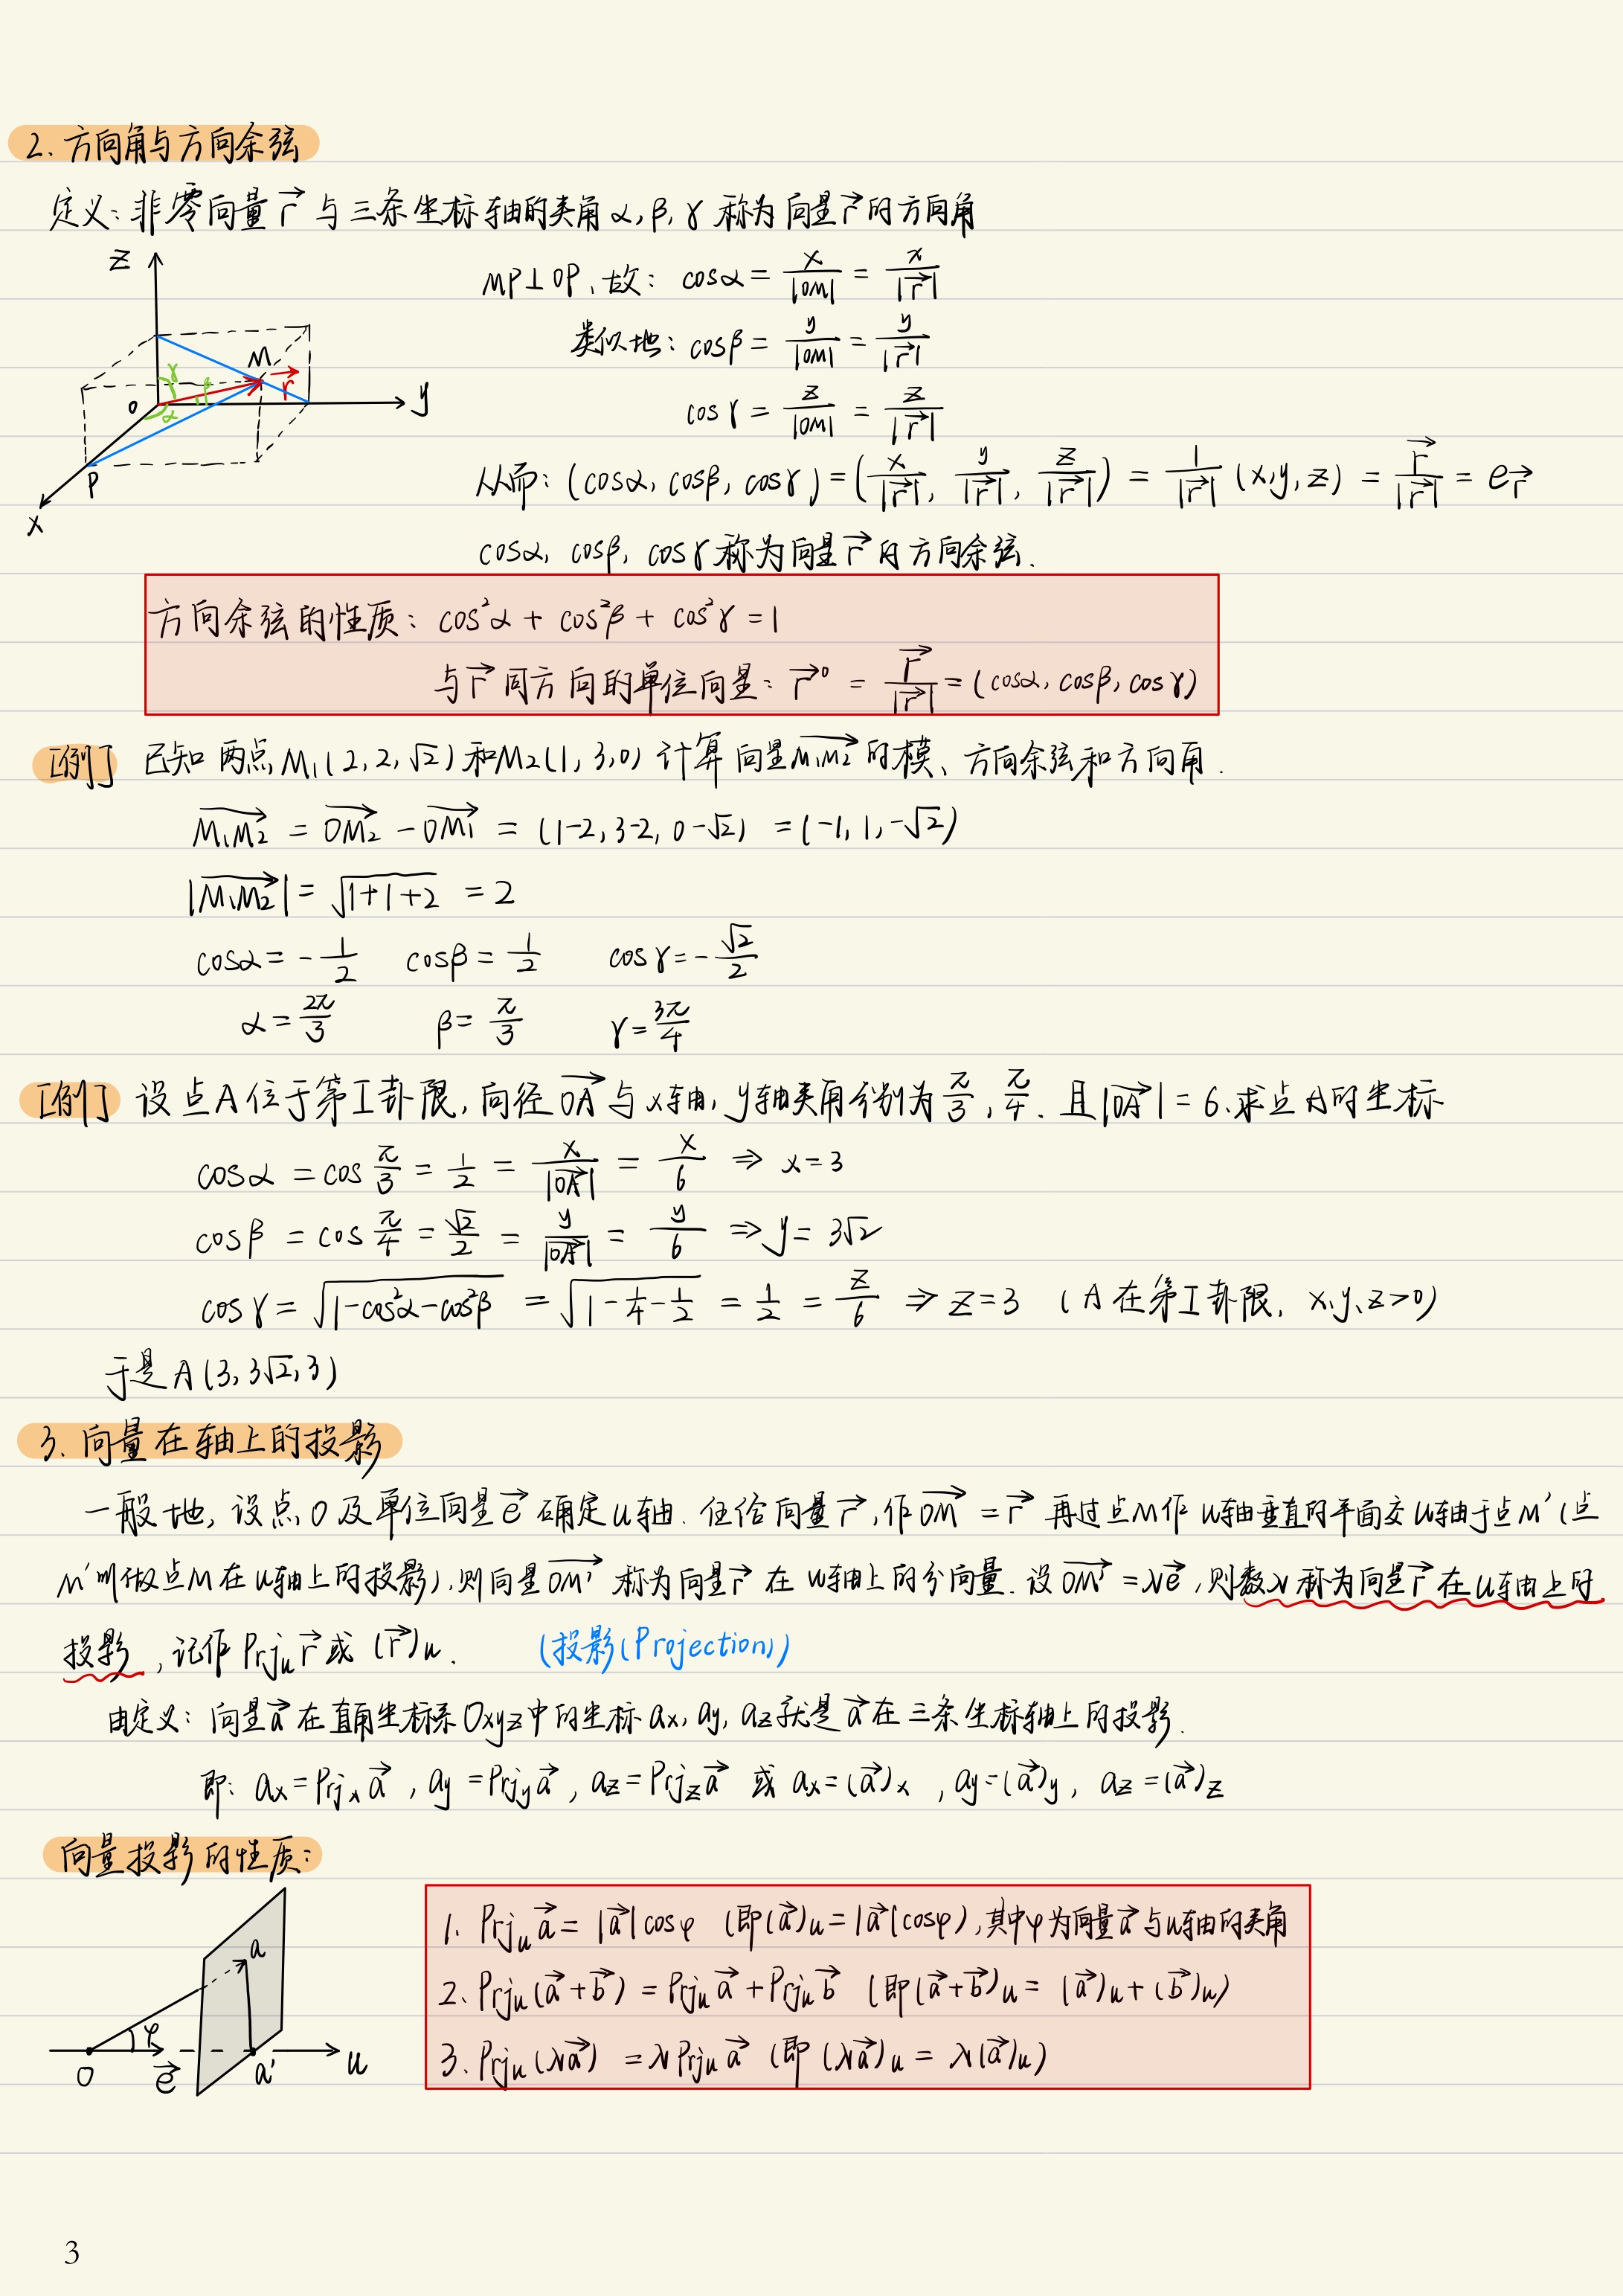 2. 方向角与方向余弦
定义: 非零向量 r⃗ 与三条坐标轴的夹角 α, β, γ 称为向量 r⃗ 的方向角
z
M
r⃗
γ
β
α
O
y
P
x
MP⊥OP, 故: cosα = x/|OM| = x/|r⃗|
类似地: cosβ = y/|OM| = y/|r⃗|
cosγ = z/|OM| = z/|r⃗|
从而: (cosα, cosβ, cosγ) = (x/|r⃗|, y/|r⃗|, z/|r⃗|) = 1/|r⃗| (x, y, z) = r⃗/|r⃗| = e_r⃗
cosα, cosβ, cosγ 称为向量 r⃗ 的方向余弦.
方向余弦的性质: cos²α + cos²β + cos²γ = 1
与 r⃗ 同方向的单位向量: r⃗⁰ = r⃗/|r⃗| = (cosα, cosβ, cosγ)
[例] 已知两点 M₁(2, 2, √2) 和 M₂(1, 3, 0) 计算向量 M₁M₂⃗ 的模、方向余弦和方向角.
M₁M₂⃗ = OM₂⃗ - OM₁⃗ = (1-2, 3-2, 0-√2) = (-1, 1, -√2)
|M₁M₂⃗| = √(1+1+2) = 2
cosα = -1/2 cosβ = 1/2 cosγ = -√2/2
α = 2π/3 β = π/3 γ = 3π/4
[例] 设点A位于第I卦限, 向径 OA⃗ 与 x轴, y轴夹角分别为 π/3, π/4. 且 |OA⃗| = 6, 求点A的坐标
cosα = cos π/3 = 1/2 = x/|OA⃗| = x/6 ⇒ x = 3
cosβ = cos π/4 = √2/2 = y/|OA⃗| = y/6 ⇒ y = 3√2
cosγ = √(1-cos²α-cos²β) = √(1-1/4-1/2) = 1/2 = z/6 ⇒ z = 3 (A在第I卦限, x、y、z>0)
于是 A(3, 3√2, 3)
3. 向量在轴上的投影
一般地, 设点O及单位向量 e⃗ 确定u轴. 任给向量 r⃗, 作 OM⃗ = r⃗ 再过点M作 u轴垂直的平面交u轴于点M' (点
M'叫做点M在u轴上的投影), 则向量 OM'⃗ 称为向量 r⃗ 在u轴上的分向量. 设 OM'⃗ = λe⃗, 则数λ称为向量 r⃗ 在u轴上的
投影, 记作 Prjᵤ r⃗ 或 (r⃗)ᵤ. (投影(Projection))
由定义: 向量 a⃗ 在直角坐标系 Oxyz 中的坐标 ax, ay, az 就是 a⃗ 在三条坐标轴上的投影.
即: ax = Prjₓ a⃗, ay = Prj_y a⃗, az = Prj_z a⃗ 或 ax = (a⃗)ₓ, ay = (a⃗)_y, az = (a⃗)_z
向量投影的性质:
a
φ
O
e⃗
a'
u
1. Prjᵤ a⃗ = |a⃗|cosφ (即(a⃗)ᵤ = |a⃗|cosφ), 其中φ为向量 a⃗ 与u轴的夹角
2. Prjᵤ(a⃗+b⃗) = Prjᵤ a⃗ + Prjᵤ b⃗ (即(a⃗+b⃗)ᵤ = (a⃗)ᵤ + (b⃗)ᵤ)
3. Prjᵤ(λa⃗) = λPrjᵤ a⃗ (即 (λa⃗)ᵤ = λ(a⃗)ᵤ)
3